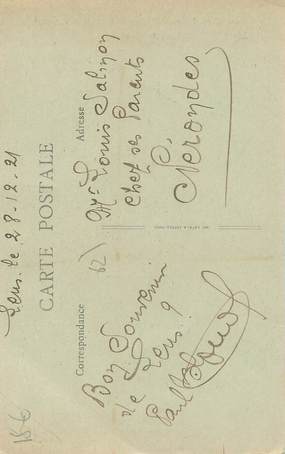 Lens. le 28-12-21
CARTE POSTALE
Correspondance
Adresse
Bon Souvenir
de Lens. 9
Paul
62)
Mr Louis Salmon
chez ses Parents
Nérondes
186